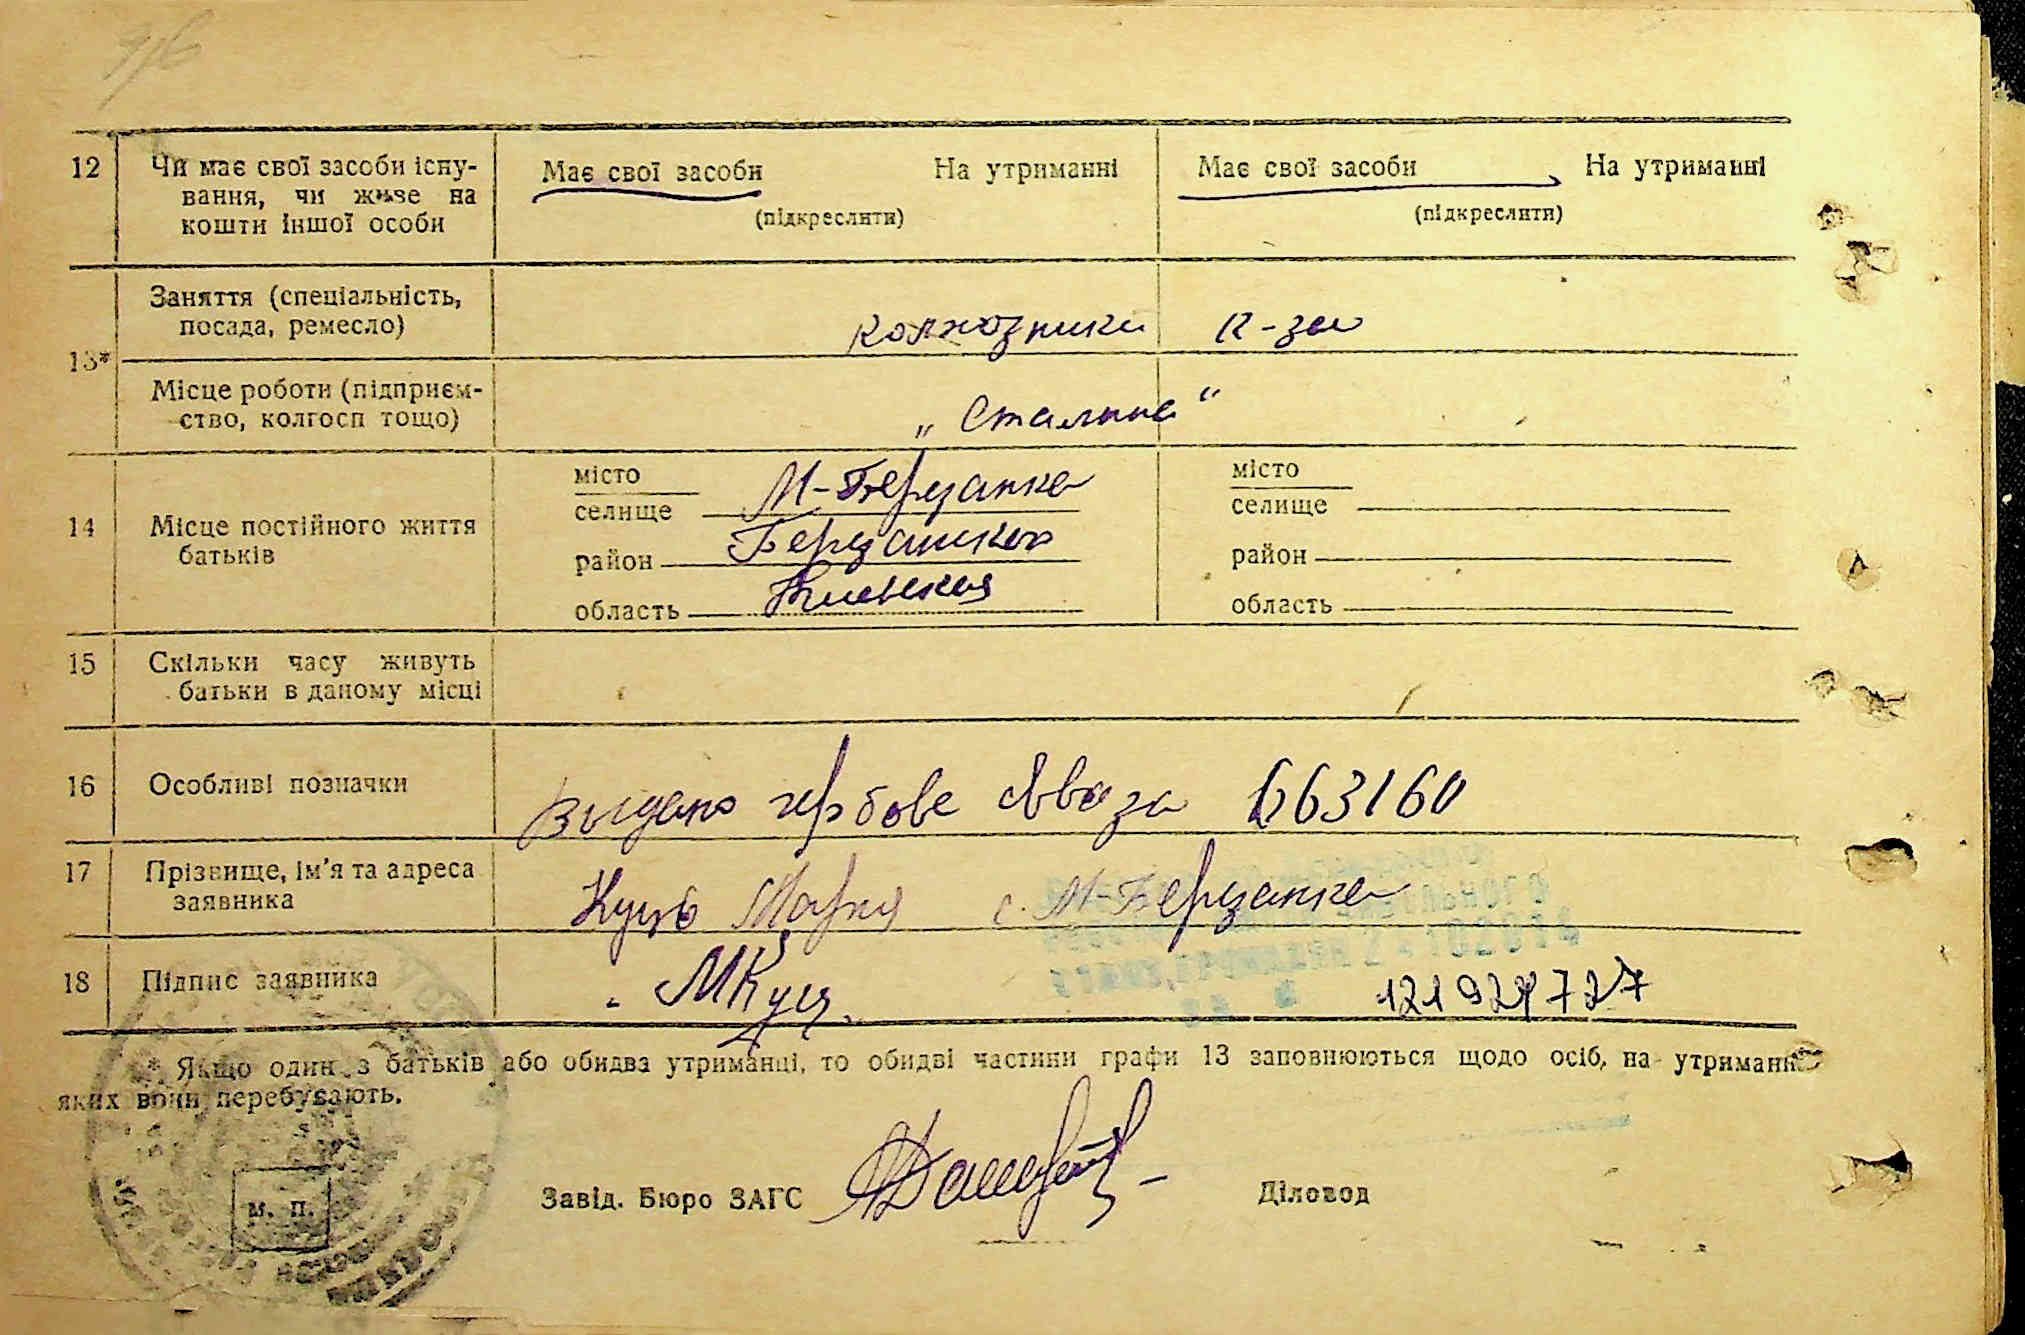 12 Чи має свої засоби існу-
вання, чи живе на
кошти іншої особи
Має свої засоби На утриманні
(підкреслити)
Має свої засоби На утриманні
(підкреслити)
13*
Заняття (спеціальність,
посада, ремесло)
колхозники к-за
Місце роботи (підприєм-
ство, колгосп тощо)
„Сталина“
14 Місце постійного життя
батьків
місто
селище М-Березанка
район
область Киевская
місто
селище
район
область
15 Скільки часу живуть
батьки в даному місці
16 Особливі позначки
гербове 663160
17 Прізвище, ім'я та адреса
заявника
Куць Мария с. М-Березанка
18 Підпис заявника
МКуц
* Якщо один з батьків або обидва утриманці, то обидві частини графи 13 заповнюються щодо осіб, на утриманн
яких вони перебувають.
М. П.
Завід. Бюро ЗАГС
Діловод